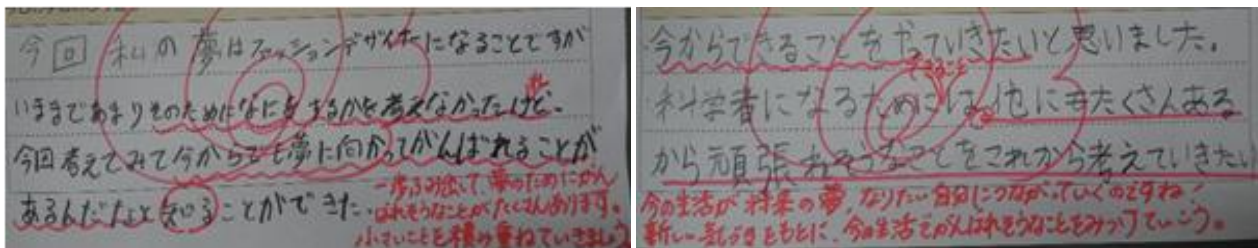 今回 私の夢はファッションデザイナーになることですが
いままであまりそのためになにをするかを考えなかったけど、
今回考えてみて今からでも夢に向かってがんばれることが
あるんだなと知ることができた。
一歩ふみ出して、夢のためにがん
ばれそうなことがたくさんあります。
小さいことを積み重ねていきましょう
今からできることをやっていきたいと思いました。
できること
科学者になるためには、他にもたくさんある
から頑張れそうなことをこれから考えていきたい
今の生活が将来の夢、なりたい自分につながっていくのですね!
新しい気づきをもとに、今の生活でがんばれそうなことをみつけていこう。